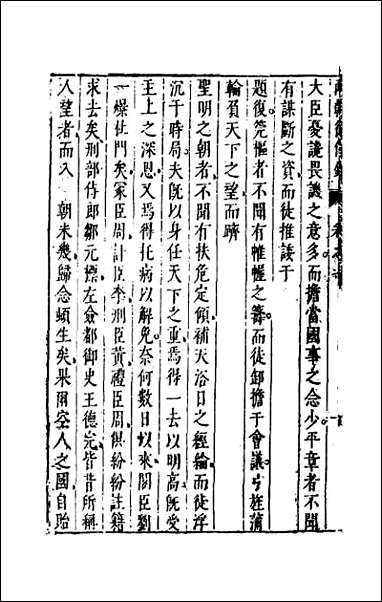 大臣憂讒畏譏之意多而擔當國事之念少平章者不聞
有謀斷之資而徒推諉于
題復筦樞者不聞有帷幄之籌而徒卸擔于會議弓旌蒲
輪負天下之望而躋
聖明之朝者不聞有扶危定傾補天浴日之經綸而徒浮
沉于時局夫旣以身任天下之重焉得一去以明高旣受
主上之深恩又焉得托病以解免奈何數日以來閣臣劉
一燝杜門矣冢臣周計臣李刑臣黃禮臣周俱紛紛註籍
求去矣刑部侍郎鄒元標左僉都御史王德完皆昔所稱
人望者而入 朝未幾歸念頓生矣果爾空人之國自貽